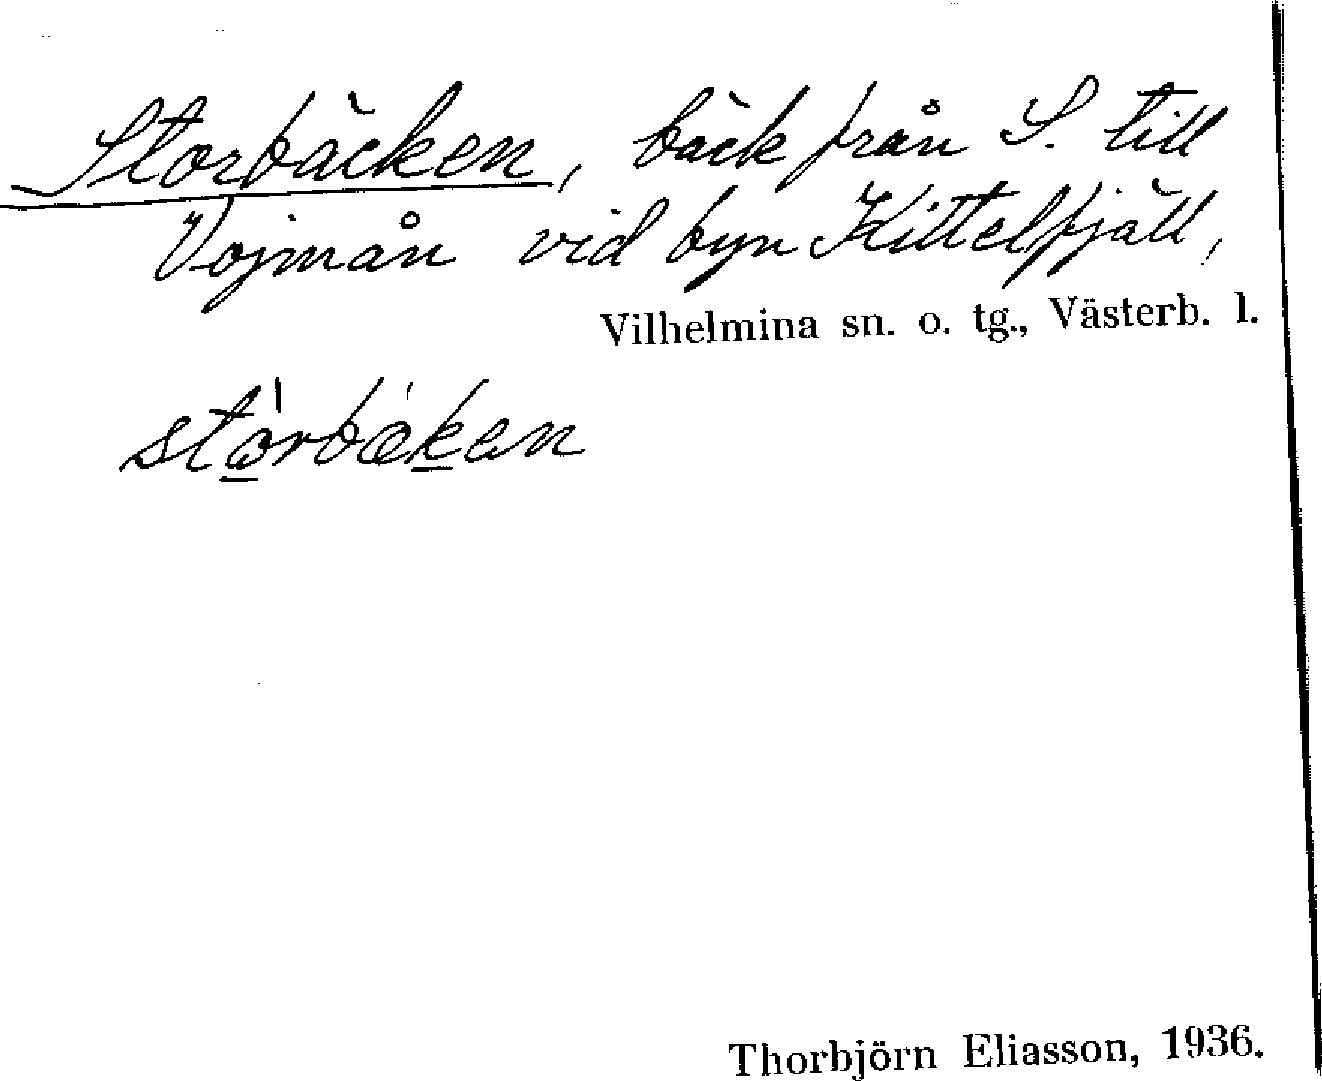 Storbäcken, bäck från S. till
Vojmån vid byn Kittelfjäll,
Vilhelmina sn. o. tg., Västerb. l.
stórbækan
Thorbjörn Eliasson, 1936.